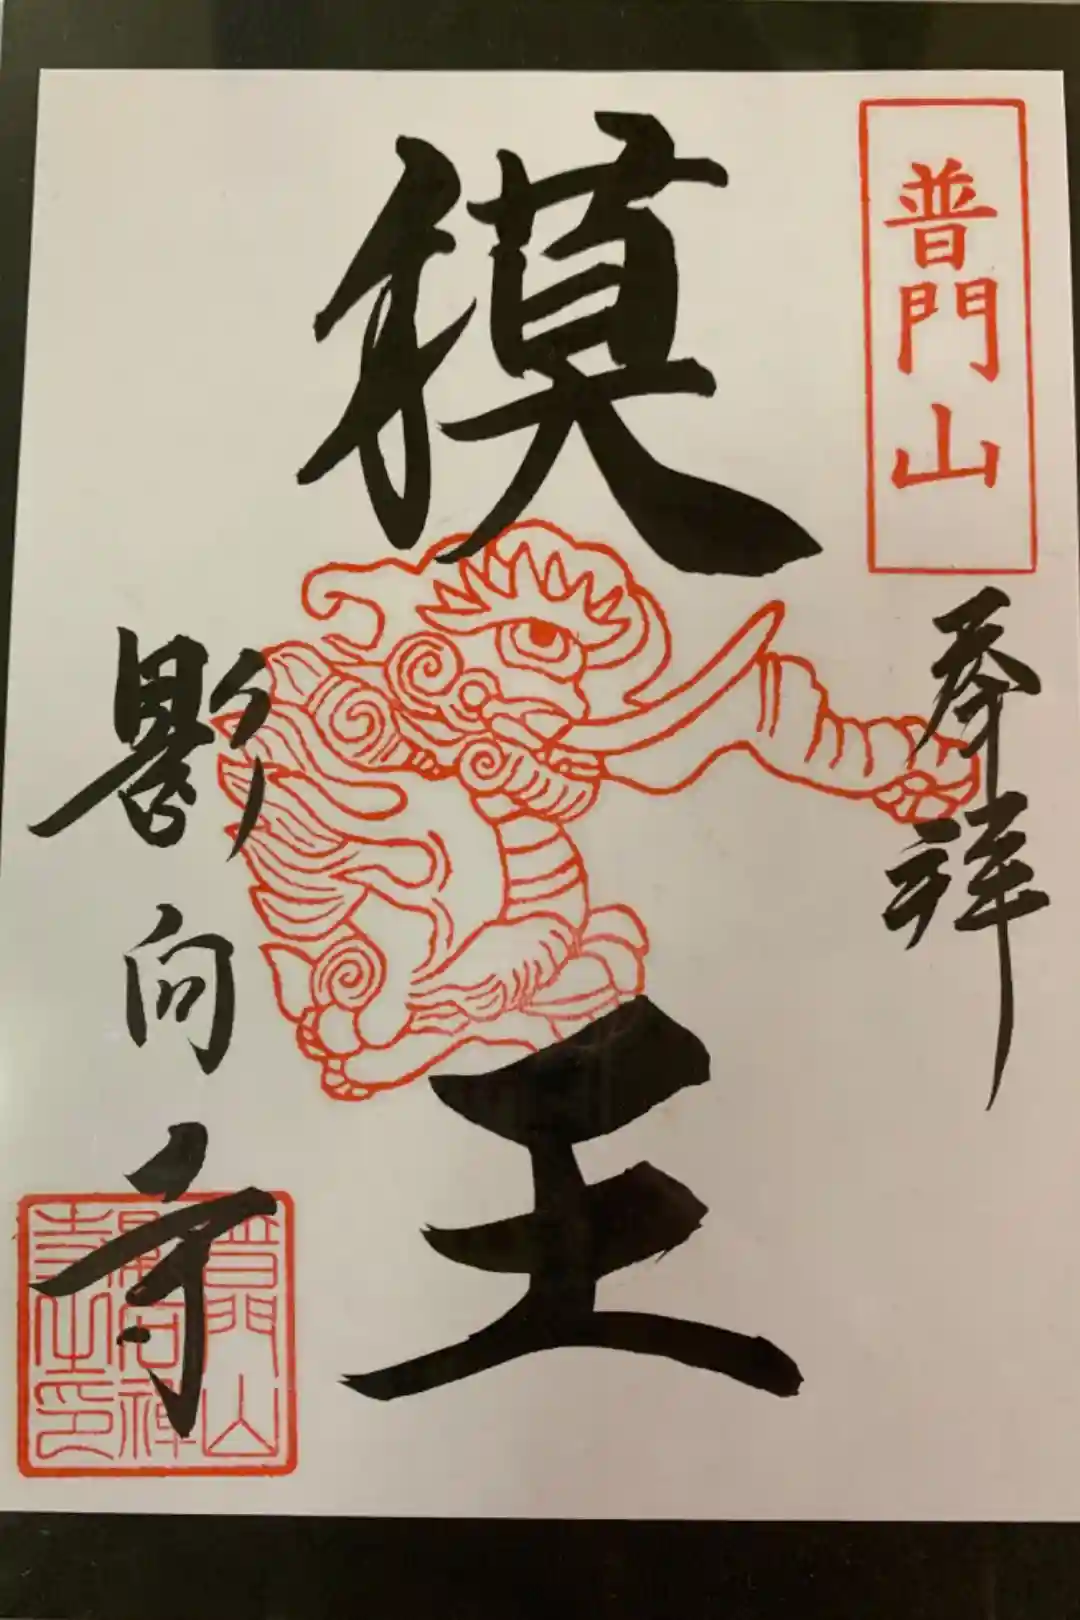 普門山
奉拝
獏王
影向寺
普門山
影向禅
寺之印